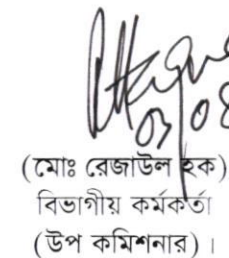 (মোঃ রেজাউল হক)
বিভাগীয় কর্মকর্তা
(উপ কমিশনার)।